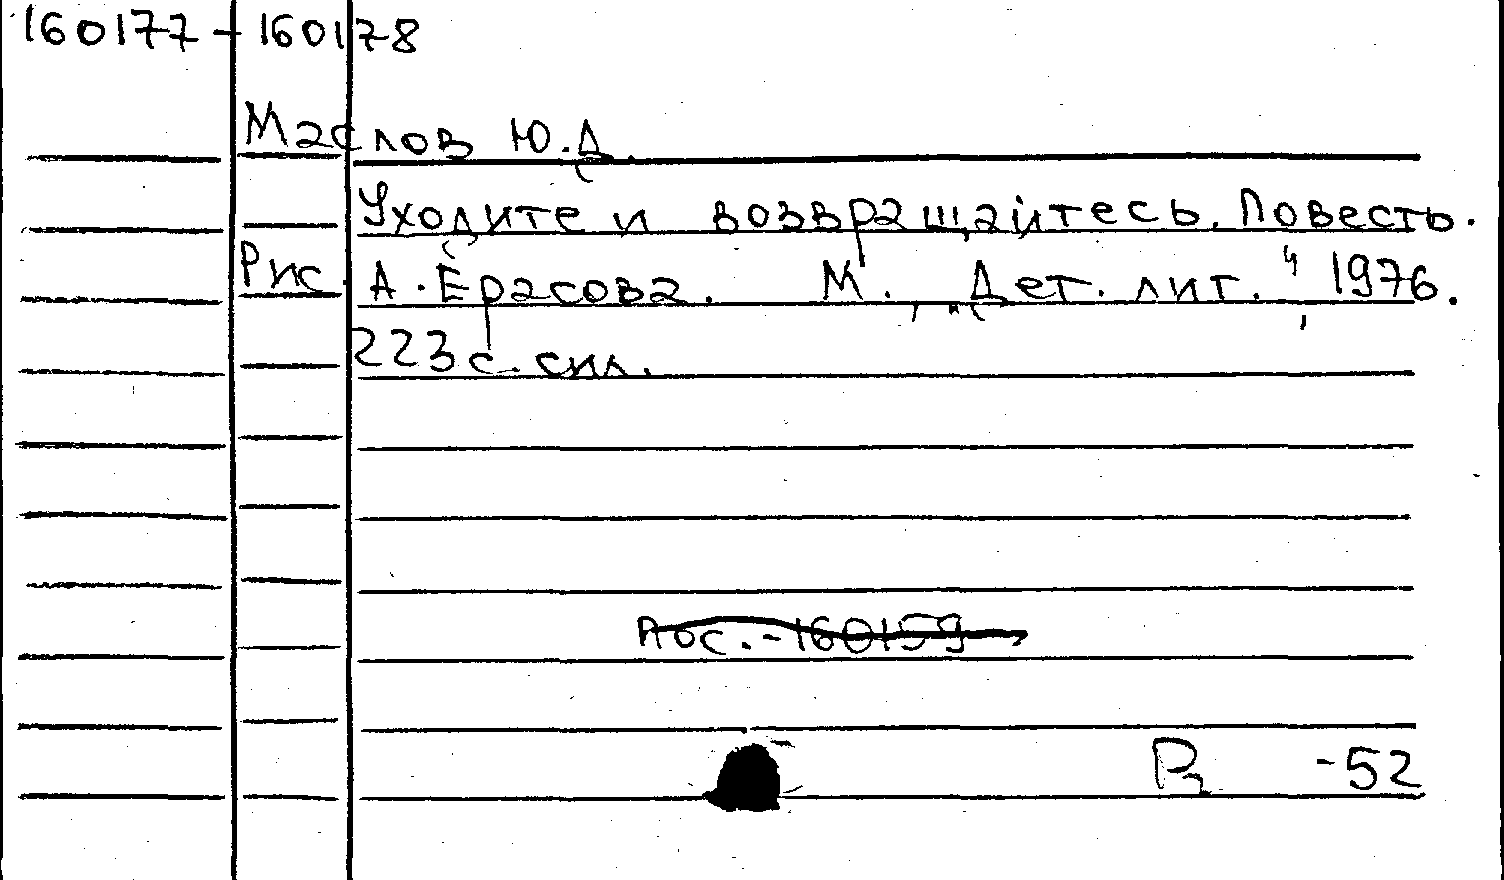 160177-160178
Маслов Ю.Д.
Уходите и возвращайтесь. Повесть.
Рис. А. Ерасова. М., "Дет. лит.", 1976.
223 с. с ил.
Пос. - 160159
Р2 -52